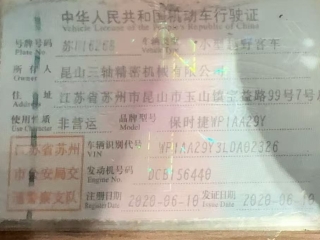 中华人民共和国机动车行驶证
Vehicle License of the People's Republic of China
号牌号码 车辆类型 小型越野客车
Plate No.
所有人 昆山三轴精密机械有限公司
Owner
住址 江苏省苏州市昆山市玉山镇 路99号7号
Address
使用性质 非营运 品牌型号 保时捷WP1AA29Y
Use Character Model
江苏省苏州 车辆识别代号
VIN
市公安局交 发动机号码
Engine No.
通警察支队 注册日期 2020-06-10 发证日期 2020-06-10
Register Date Issue Date